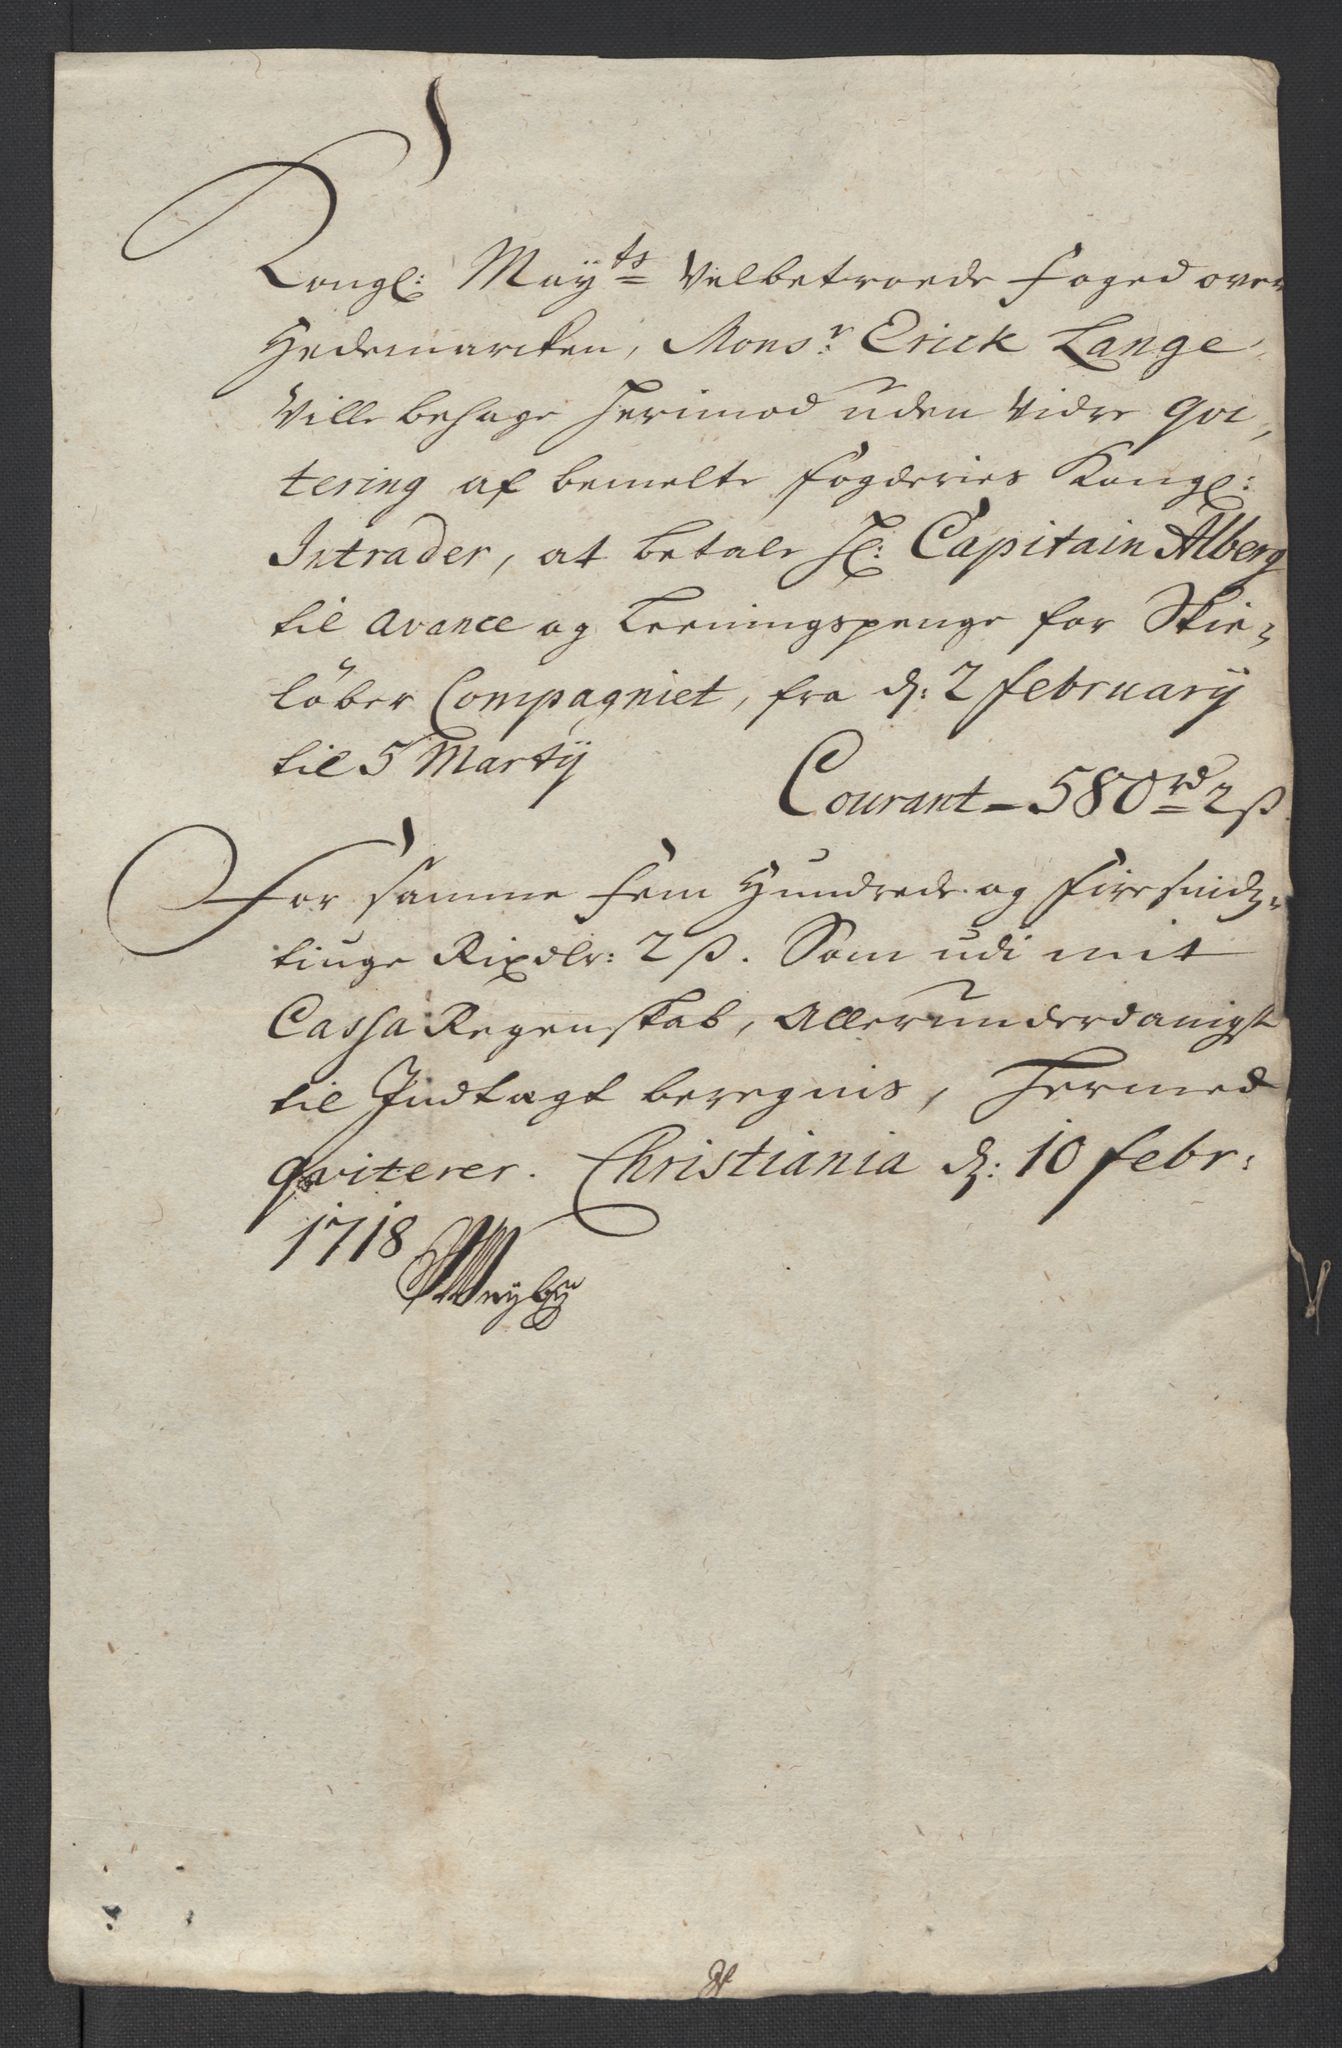 Kongl: Mayts Velbetroede Foged over
Hedemarcken, Monsr: Erick Lange
Ville behage herimod uden vidre qvi,
tering af bemelte Fogderies Kongl:
Intrader, at betale Hr: Capitain Alberg
til avance og Leeningspenge for Skie-
löber Compagniet, fra d: 2 februarij
til 5 Martij
Courant - 580 rd 2 ß
For samme Fem Hundrede og Firesindz-
tiuge Rixdlr: 2 ß. Som udi mit
Cassa Regenskab, Allerunderdanigst
til Indtægt beregnis, hermed
qviterer. Christiania d: 10 febr:
1718